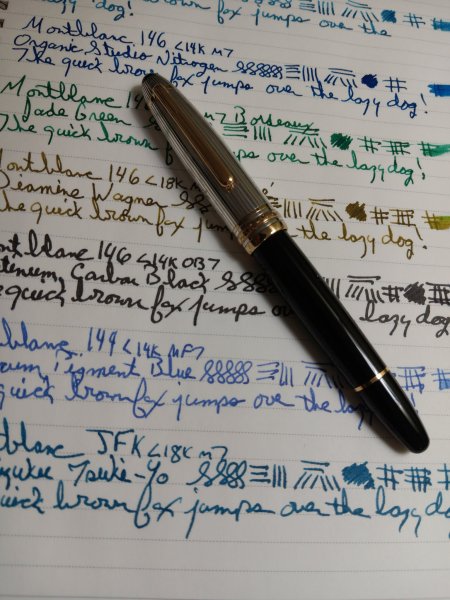 jumps over the
Montblanc 146 <14K M>
Organic Studio Nitrogen
The quick brown fox jumps over the lazy dog!
Montblanc 14
Jade Green Bordeaux
The quick brown fox jumps over the lazy dog!
Montblanc 146 <18K M>
Diamine Wagner
the quick brown fox jumps the lazy dog!
ontblanc 146 <14K OB>
atinum Carbon Black
quick brown fox jumps over lazy dog
blanc 149 <14K MF>
Pigment Blue
quick brown fox jumps over the lazy
tblanc JFK <18K M>
Tsuki-Yo
quick brown fox jumps over the lazy dog